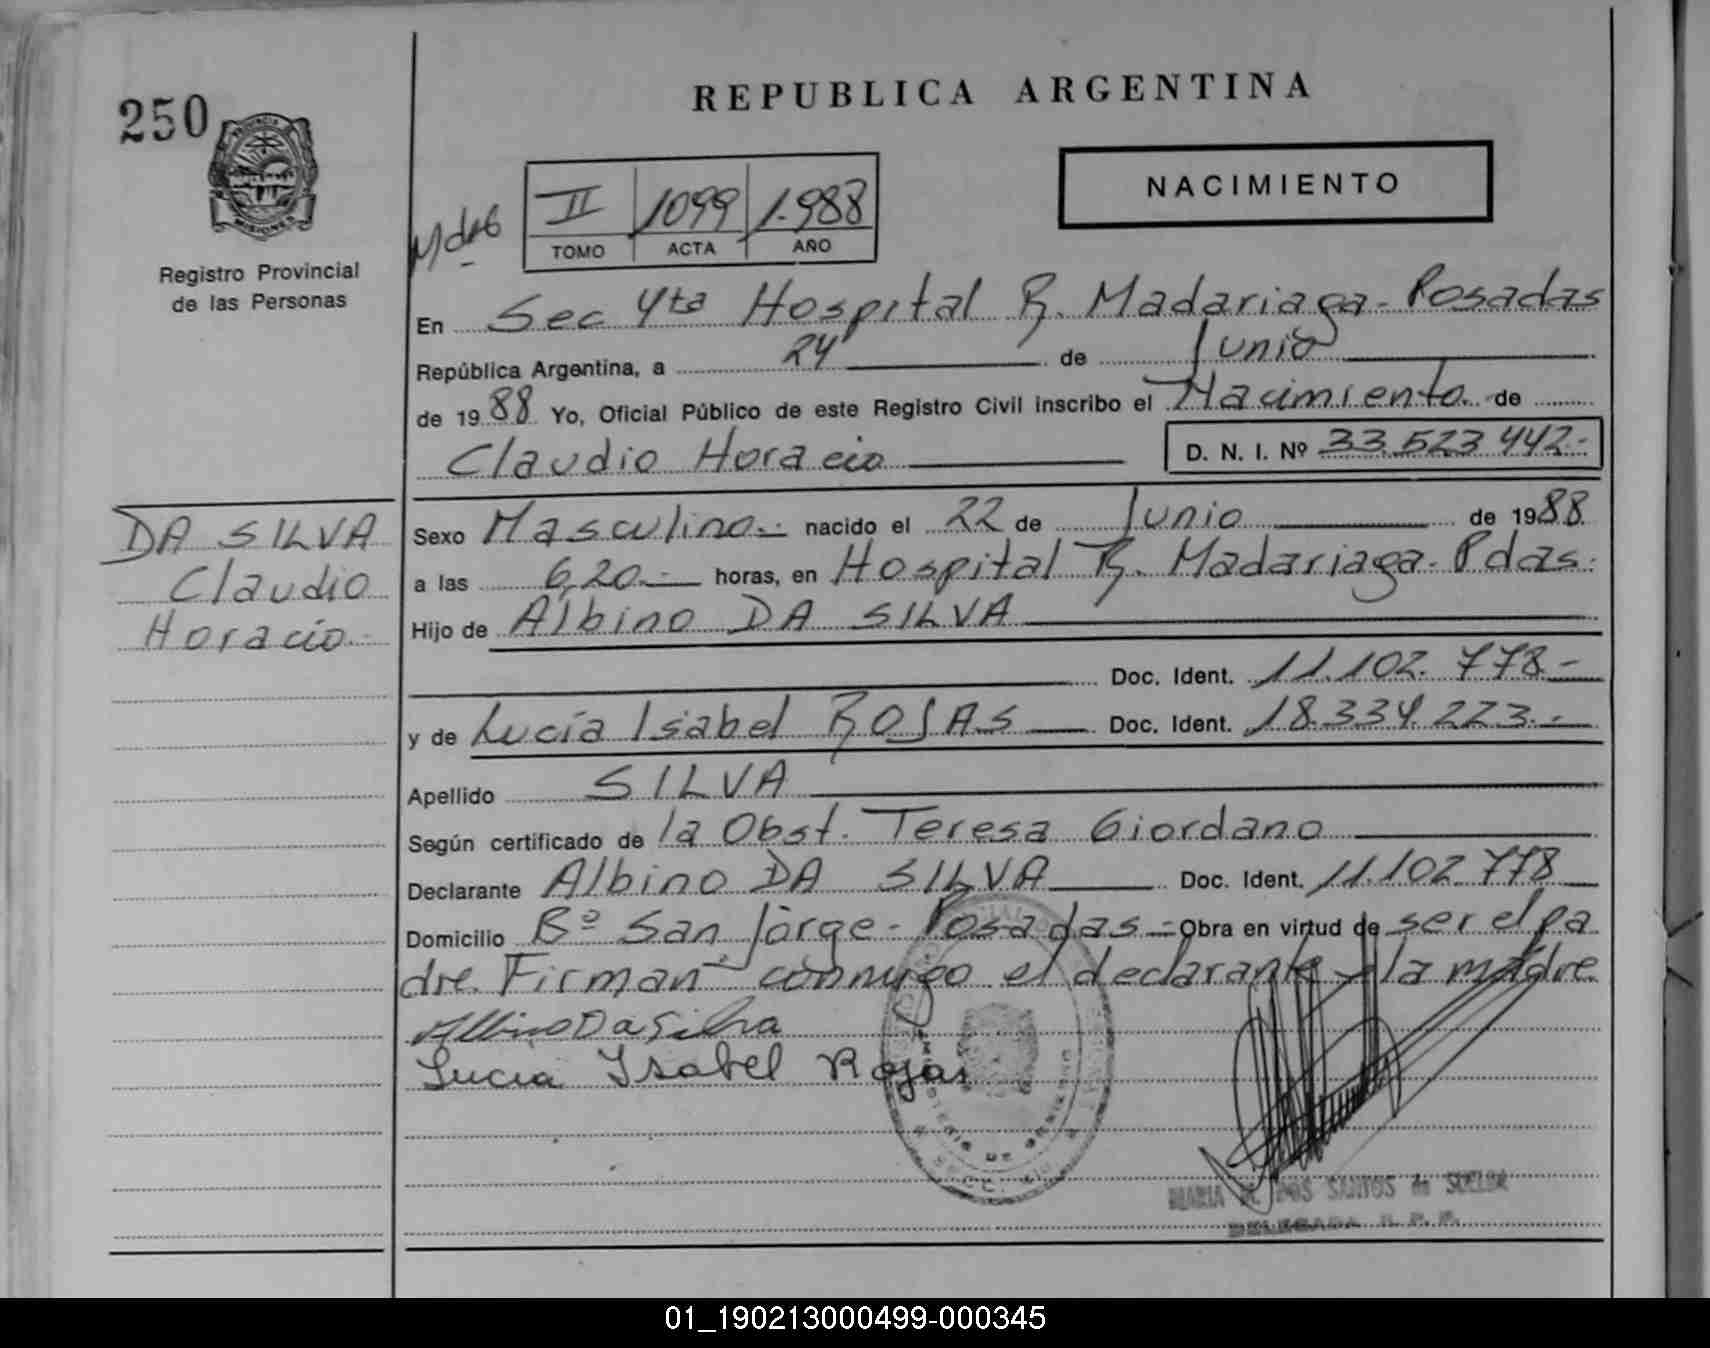 250
REPUBLICA ARGENTINA
PROVINCIA DE
MISIONES
Registro Provincial
de las Personas
NACIMIENTO
II 1099 1.988
TOMO ACTA AÑO
En Sec 4ta Hospital R. Madariaga - Posadas
República Argentina, a 24 de Junio
de 1988 Yo, Oficial Público de este Registro Civil inscribo el Nacimiento de
Claudio Horacio D. N. I. Nº 33.523.442.-
DA SILVA
Claudio
Horacio.-
Sexo Masculino.- nacido el 22 de Junio de 1988.
a las 6,20.- horas, en Hospital R. Madariaga - Pdas.
Hijo de Albino DA SILVA
Doc. Ident. 11.102.778.-
y de Lucía Isabel ROJAS Doc. Ident. 18.334.223.-
Apellido SILVA
Según certificado de la Obst. Teresa Giordano
Declarante Albino DA SILVA Doc. Ident. 11.102.778
Domicilio Bº San Jorge - Posadas - Obra en virtud de ser el pa
dre. Firman conmigo el declarante y la madre
Albino Da Silva
Lucia Isabel Rojas
MARIA DOS SANTOS de
DELEGADA R. P. P.
01_190213000499-000345